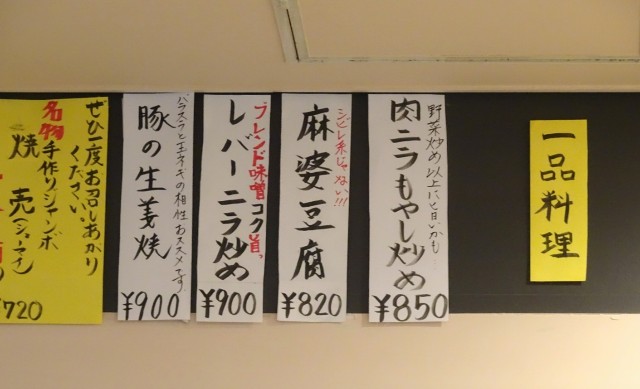 一品料理
野菜炒め以上に旨いかも…
肉ニラもやし炒め
¥850
シビレ系じゃない!!!
麻婆豆腐
¥820
ブレンド味噌コク旨っ
レバーニラ炒め
¥900
バラスライスと玉ネギの相性おススメです。
豚の生姜焼
¥900
ぜひ一度お召しあがり
ください。
名物手作りジャンボ
焼売(シューマイ)
¥720